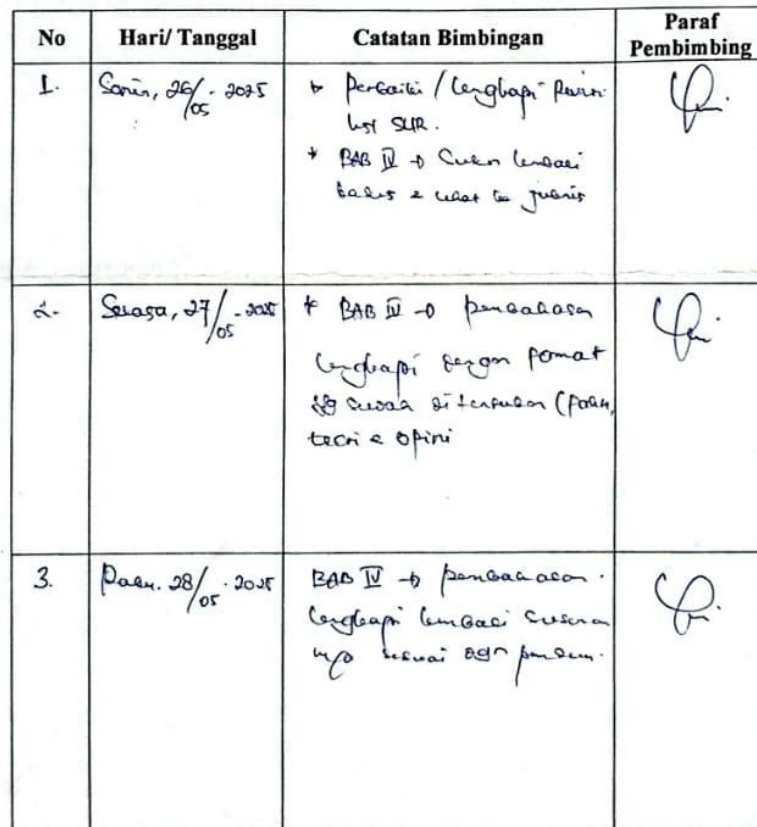 No
Hari/ Tanggal
Catatan Bimbingan
Paraf
Pembimbing
1.
Senin, 26/05 - 2025
Perbaiki / lengkapi
BAB IV →
2.
Selasa, 27/05 - 2025
* BAB IV → pembahasan
lengkapi dengan format
yg sudah di tentukan (fakta,
teori & opini
3.
Rabu. 28/05 - 2025
BAB IV → pembahasan.
lengkapi kembali susunan
nya sesuai dgn panduan.